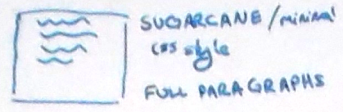 SUGARCANE / minimal
css style
FULL PARAGRAPHS